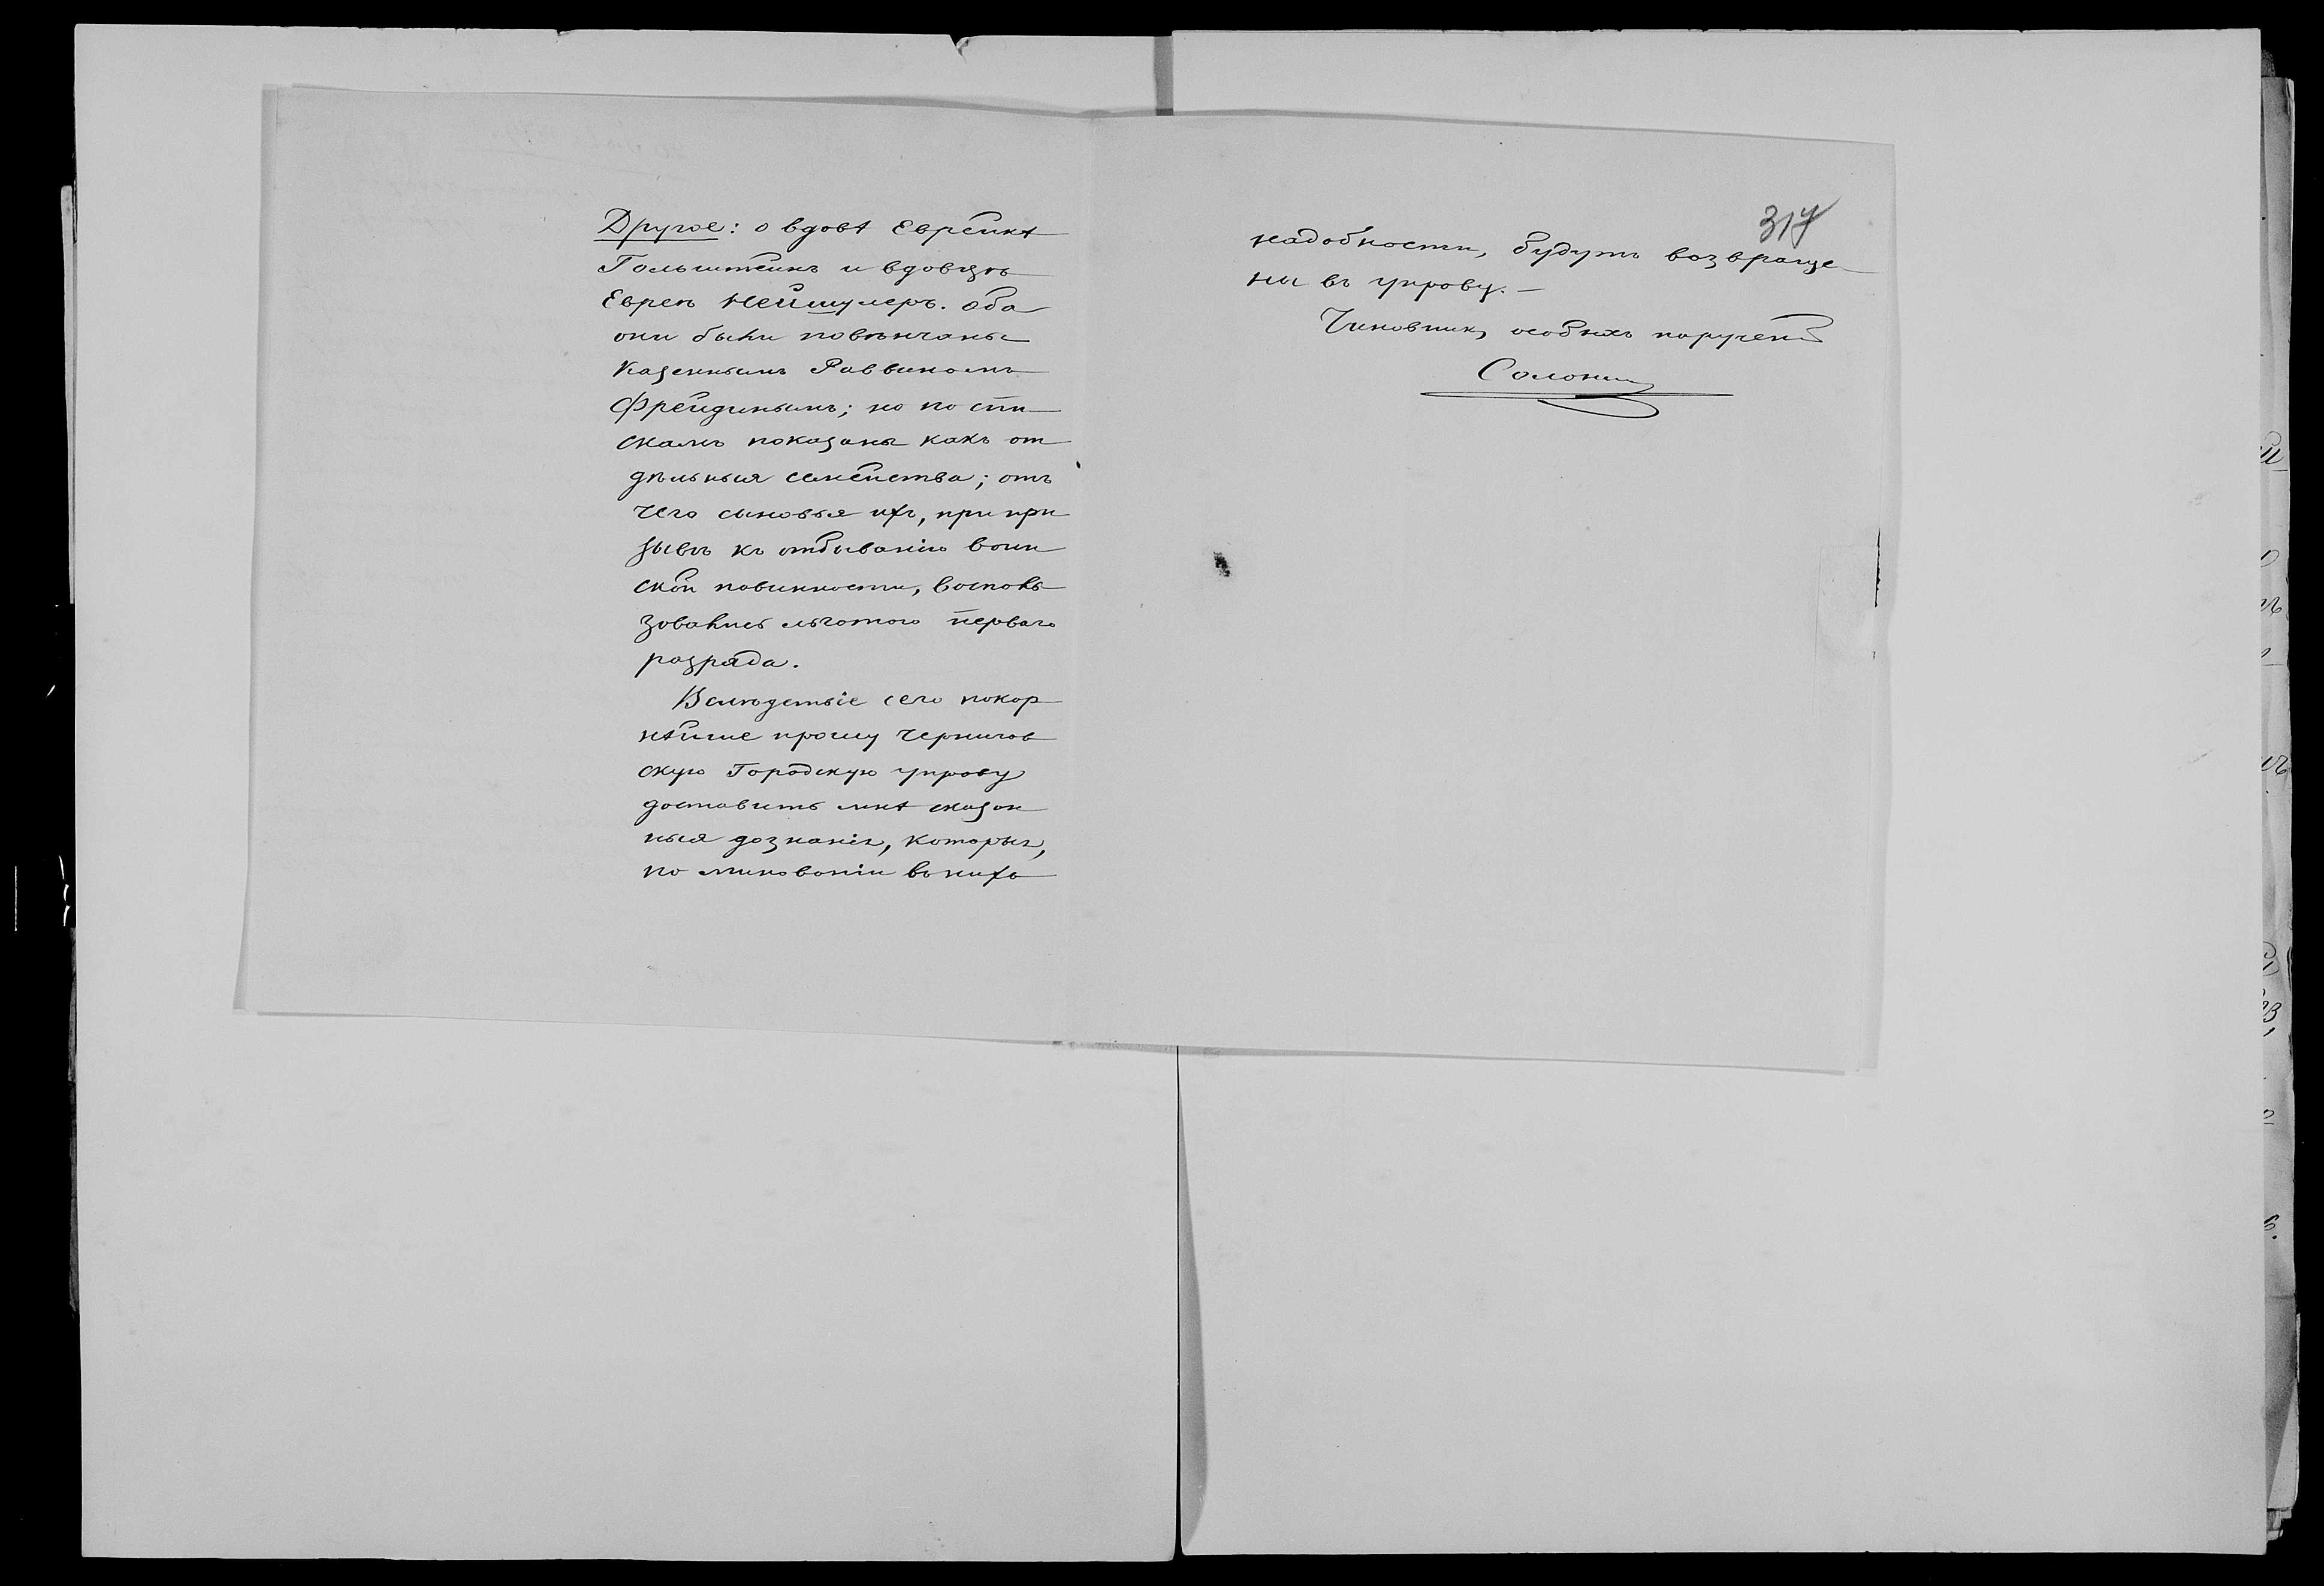 Другое: о вдовѣ Еврейкѣ
Гольштейнъ и вдовцѣ
Евреѣ Нейшулеръ. Оба
они были повѣнчаны
Казеннымъ Раввиномъ
Фрейдинымъ; но по спи
скамъ показаны какъ от
дѣльныя семейства; отъ
чего сыновья ихъ, при при
зывѣ къ отбыванію воин
ской повинности, восполь
зовались льготою перваго
разряда.
Вслѣдствіе сего покор
нѣйше прошу Чернигов
скую Городскую управу
доставить мнѣ сказан
ныя дознанія, которыя,
по минованіи въ нихъ
317
надобности, будутъ возвраще
ны въ управу.—
Чиновникъ особыхъ порученій
Солонин